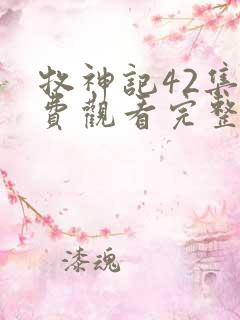 牧神記42集
費觀看完整
漆魂